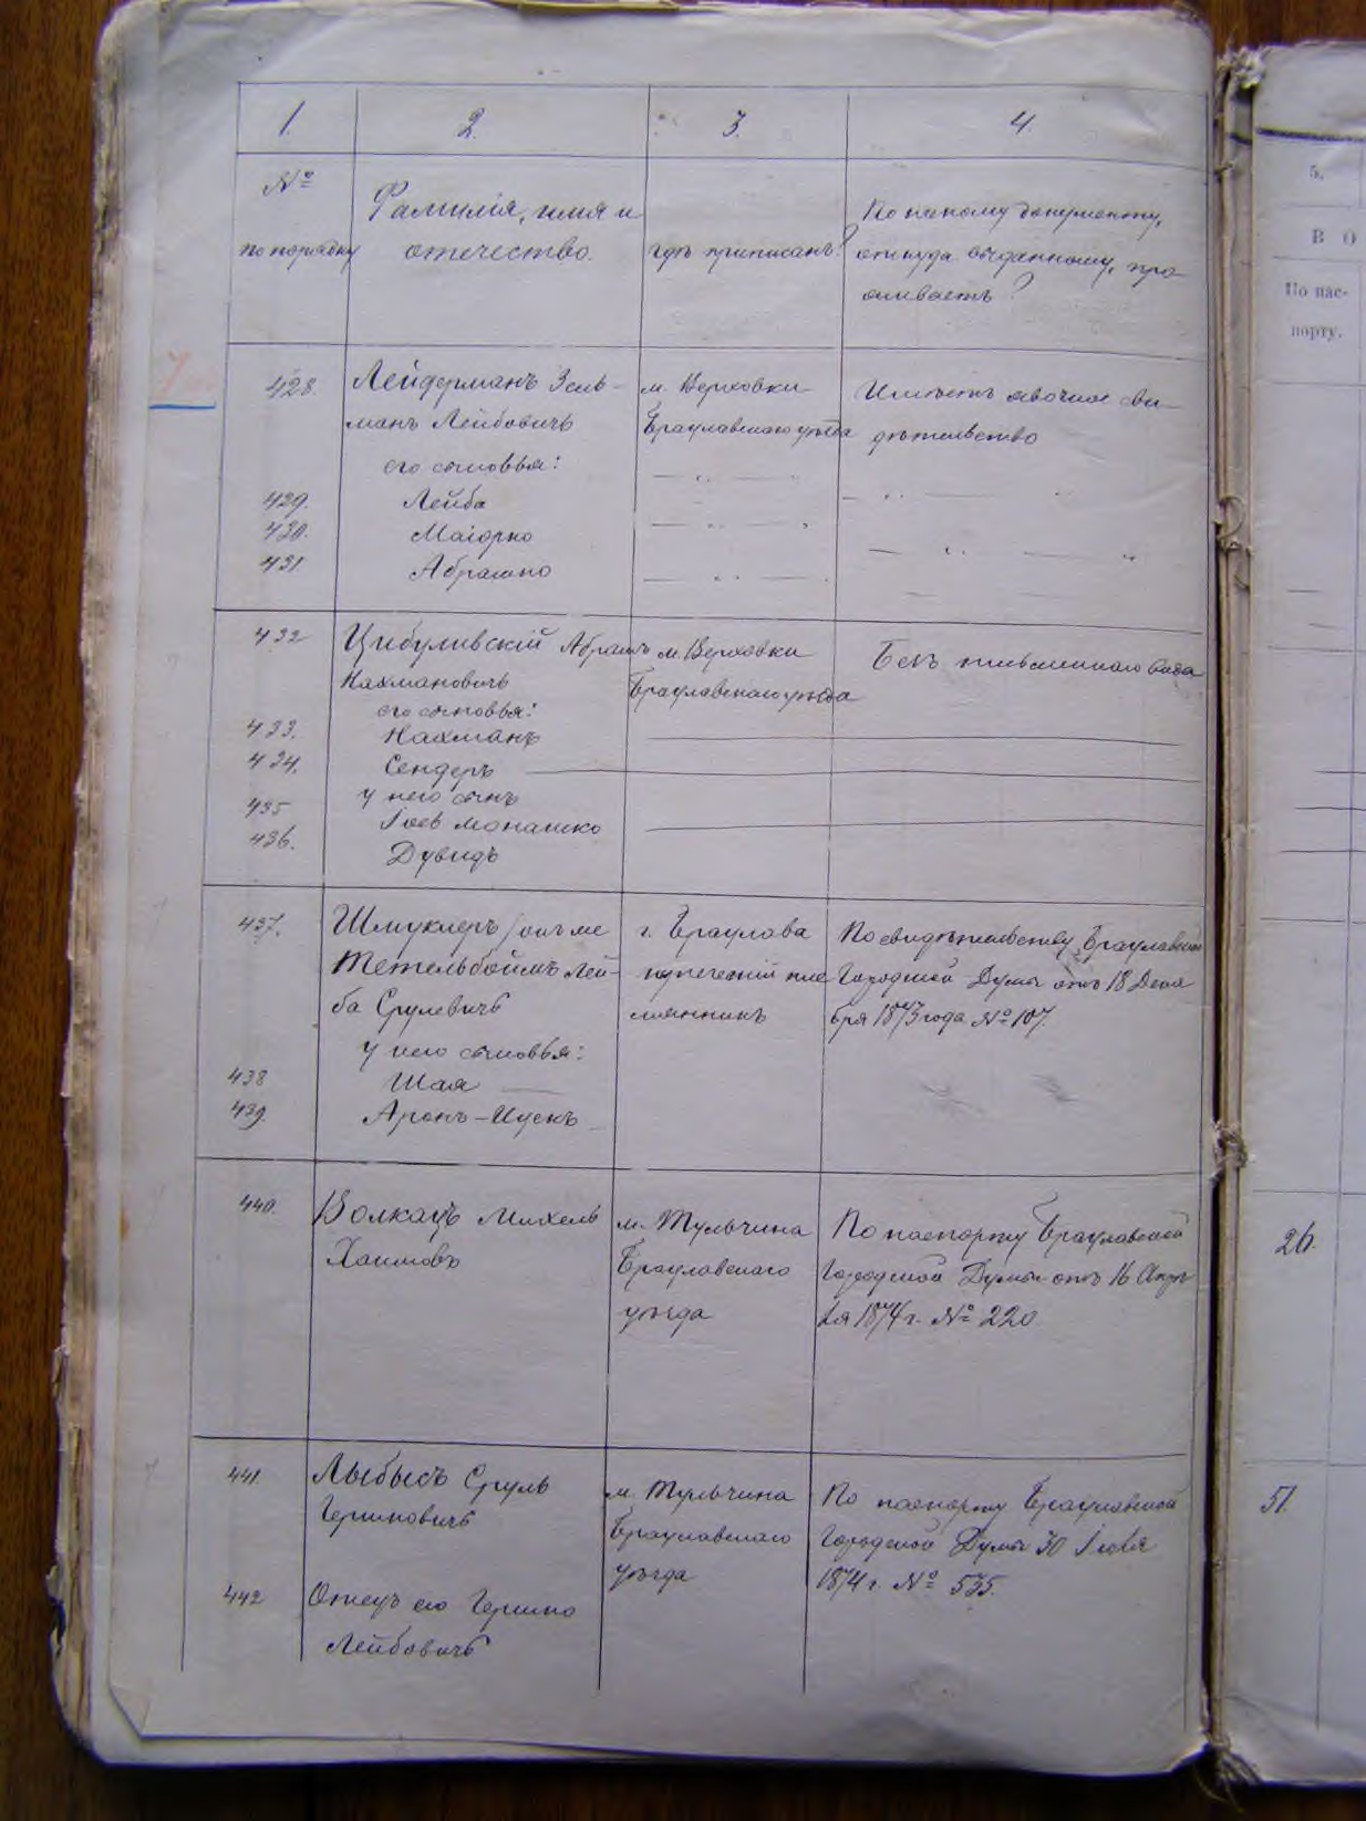 1. 2. 3. 4.
№
по порядку
Фамилія, имя и
отчество.
гдѣ приписанъ?
По какому документу,
откуда выданному, про
живаетъ?
428. Лейдерманъ Зель-
манъ Лейбовичъ
м. Верховки
Брацлавскаго уѣзда
Имѣетъ явочное сви
дѣтельство
его сыновья:
429. Лейба
430. Маіорко
431. Абрамко
432 Цибуливскій Абрамъ
Нахмановичъ
м. Верховки
Брацлавскаго уѣзда
Безъ письменнаго вида
его сыновья:
433. Нахманъ
434. Сендеръ
у него сынъ
435 Іось Монашко
436. Дувидъ
437. Шмуклеръ/онъ же
Тетельбоймъ Лей-
ба Срулевичъ
г. Брацлава
купеческій пле
мянникъ
По свидѣтельству Брацлавской
Городской Думы отъ 18 Дека
бря 1873 года № 107.
у него сыновья:
438 Шая
439. Аронъ-Ицекъ
440. Волкацъ Михель
Хаимовъ
м. Тульчина
Брацлавскаго
уѣзда
По паспорту Брацлавской
Городской Думы отъ 16 Апрѣ
ля 1874 г. № 220
441. Лыбысъ Сруль
Гершковичъ
м. Тульчина
Брацлавскаго
уѣзда
По паспорту Брацлавской
Городской Думы 30 Іюля
1874 г. № 535.
442 Отецъ его Гершко
Лейбовичъ
5.
В О
По пас-
порту.
26.
51.